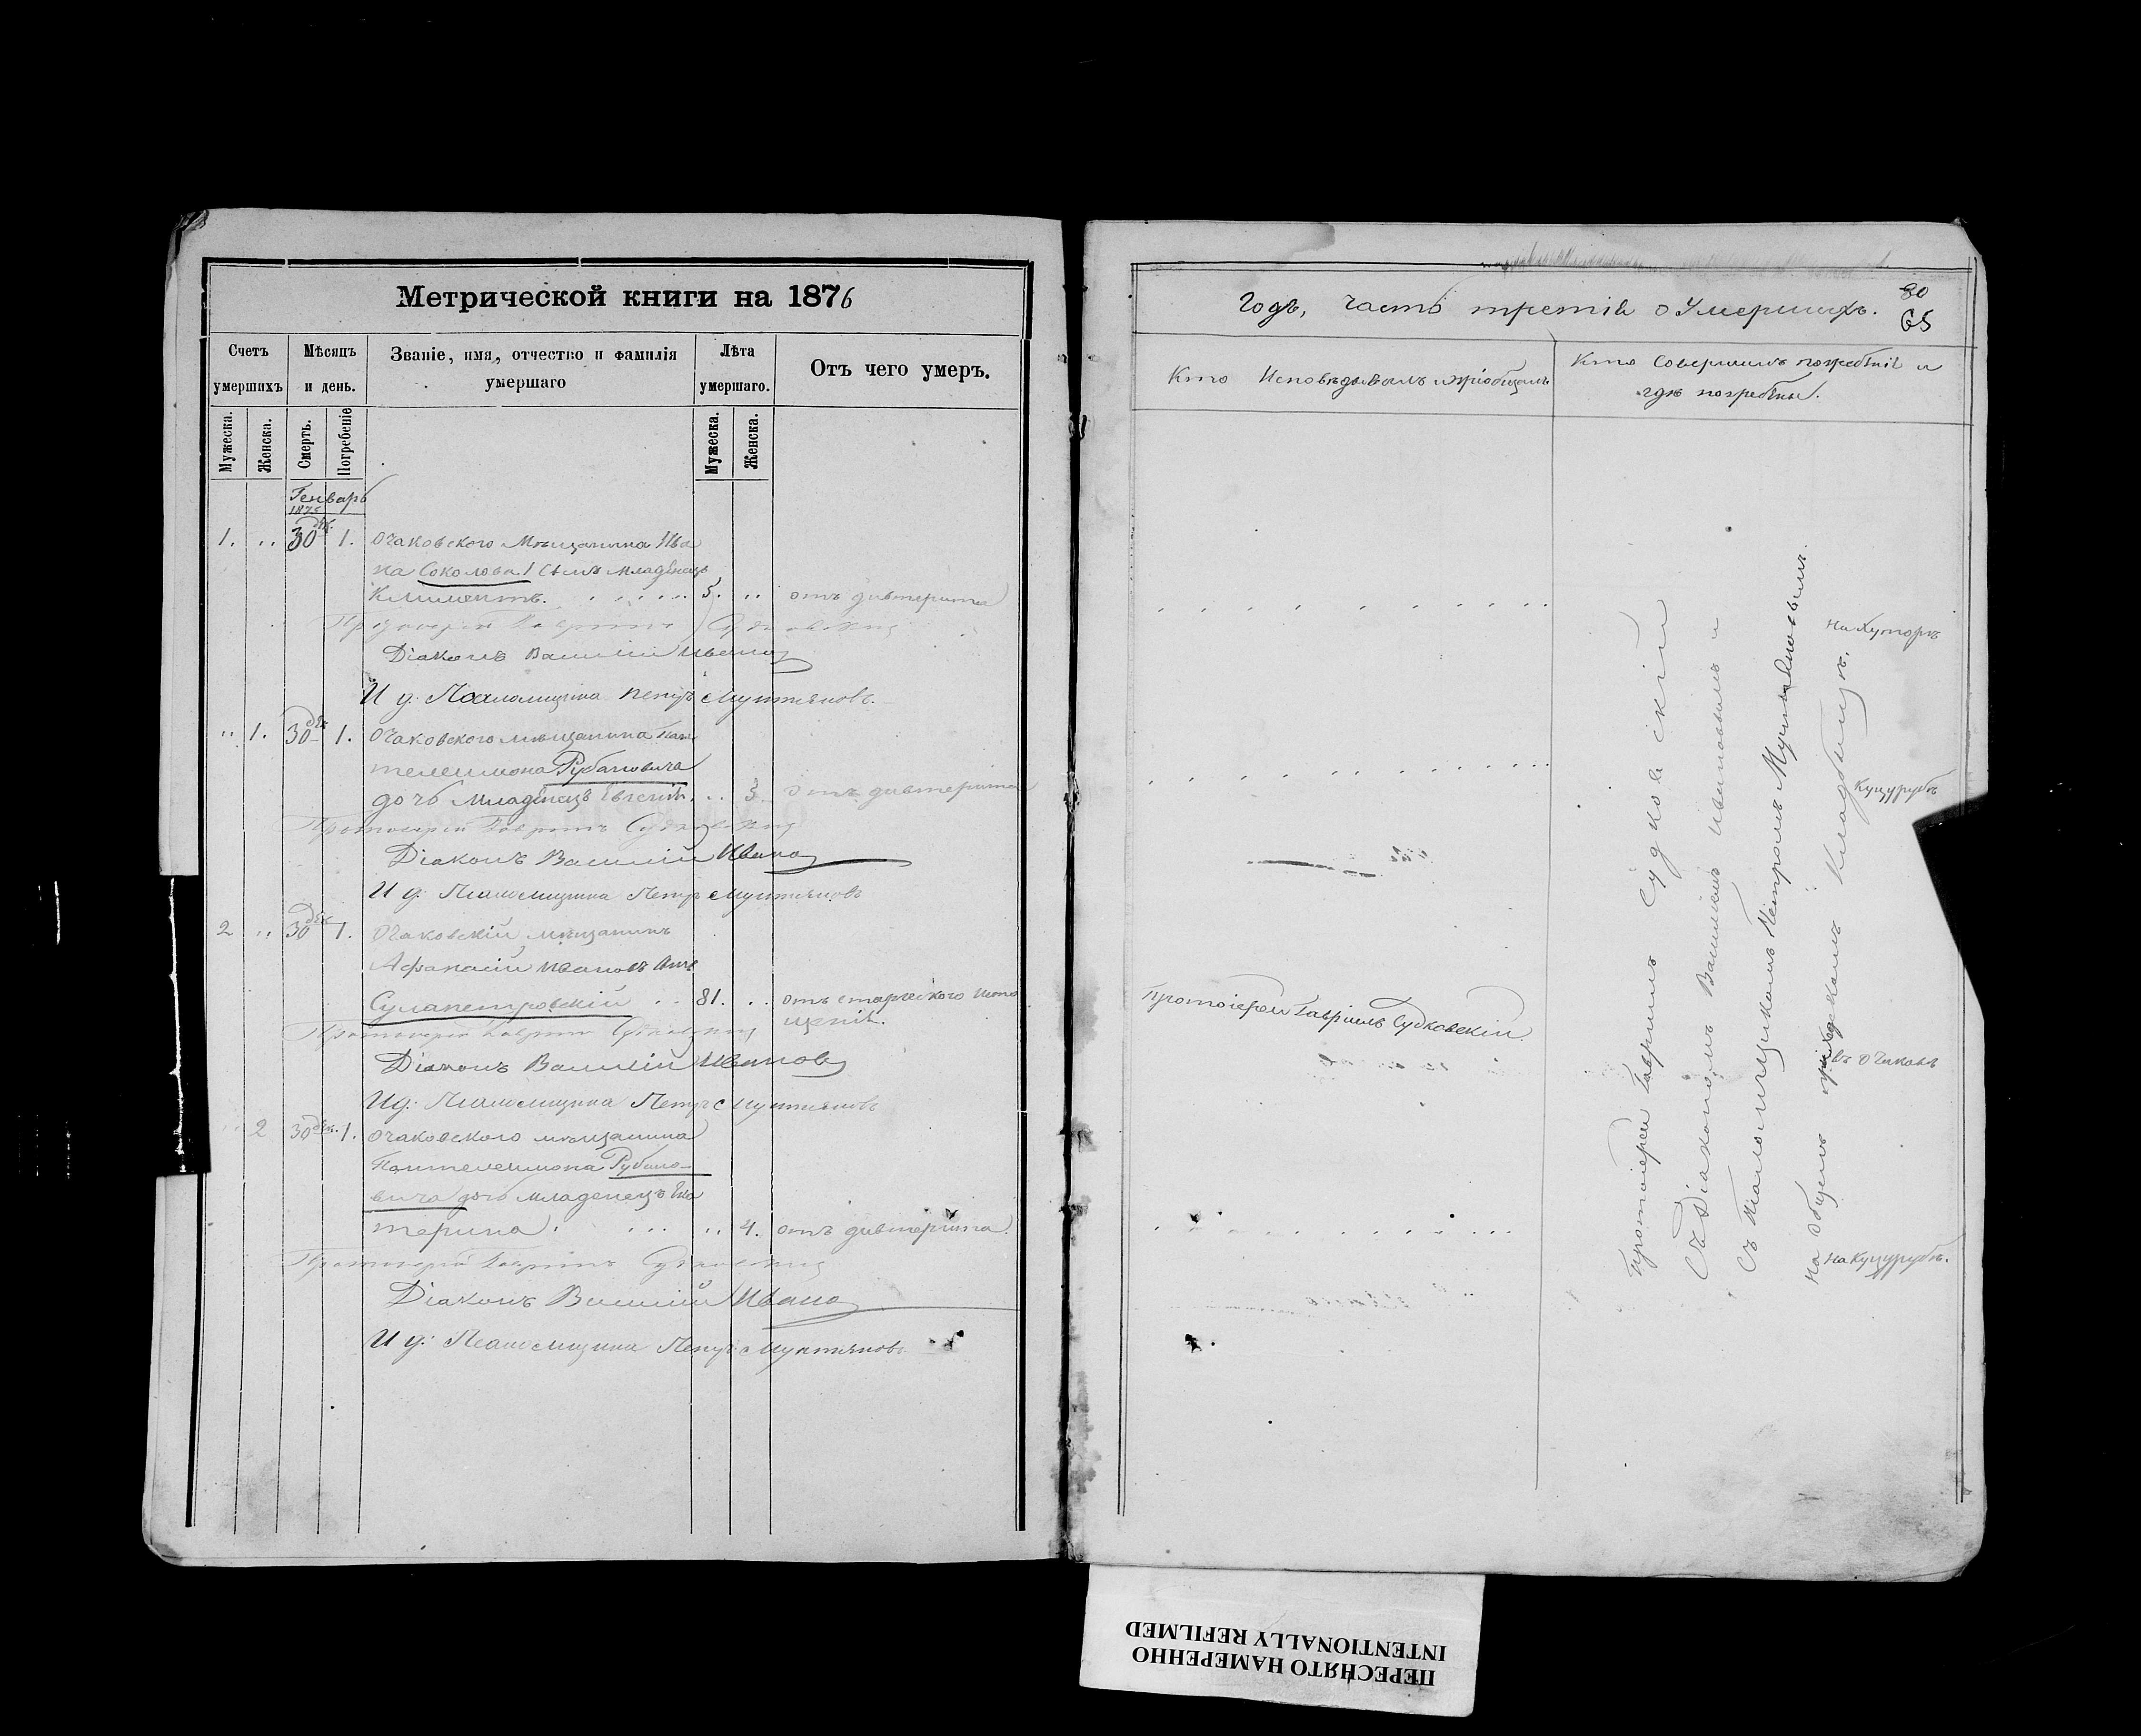 Метрической книги на 1876
Счетъ умершихъ
Мѣсяцъ и день.
Званіе, имя, отчество и фамилія умершаго
Лѣта умершаго.
Отъ чего умеръ.
Мужеска.
Женска.
Смерть.
Погребеніе
Мужеска.
Женска.
Генварь
1875
1. .. 30 дек. 1. Очаковского Мѣщанина Ива
на Соколова сынъ младенецъ
Климентъ. 5. .. отъ дивтерита
Протоіерей Гавріилъ Судковскій
Діаконъ Василій Иванов
И д: Псаломщика Петръ Мунтяновъ.
.. 1. 30 дек 1. Очаковского мѣщанина Пан
телеимона Рубановича
дочь младенецъ Евгенія. .. 3. отъ дивтерита
Протоіерей Гавріилъ Судковскій
Діаконъ Василій Иванов
И д: Псаломщика Петръ Мунтяновъ
2 .. 30 дек 1. Очаковскій мѣщанинъ
Афанасій Ивановъ
Сулапетровскій .. 81. .. отъ старческого исто
щенія.
Протоіерей Гавріилъ Судковскій
Діаконъ Василій Иванов
И д: Псаломщика Петръ Мунтяновъ
.. 2 30 дек. 1. Очаковского мѣщанина
Пантелеимона Рубано-
вича дочь младенецъ Ека
терина. .. 4. отъ дивтерита.
Протоіерей Гавріилъ Судковскій
Діаконъ Василій Иванов
И д: Псаломщика Петръ Мунтяновъ
Годъ, часть третія о Умершихъ.
80
65
Кто Исповѣдывалъ и пріобщалъ
Кто Совершалъ погребеніе и
гдѣ погребены.
Протоіерей Гавріилъ Судковскій
Протоіерей Гавріилъ Судковскій
Съ Діакономъ Василіемъ Ивановымъ и
съ Псаломщикомъ Петромъ Мунтяновымъ.
на Общемъ приходскомъ Кладбищѣ.
на Хуторѣ
Куцурубѣ
въ Очаковѣ
на Куцурубѣ.
ПЕРЕСНЯТО НАМЕРЕННО
INTENTIONALLY REFILMED